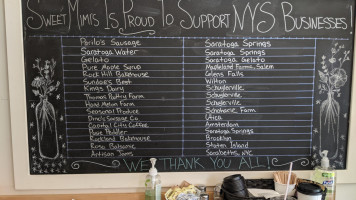 Sweet Mimi's Is Proud To Support NYS Businesses
Parillo's Sausage Saratoga Springs
Saratoga Water Saratoga Springs
Gelato Saratoga Gelato
Pure Maple Syrup Mapleland Farms, Salem
Rock Hill Bakehouse Glens Falls
Sundae's Best Wilton
Kings Dairy Schuylerville
Thomas Poultry Farm Schuylerville
Hand Melon Farm Schuylerville
Seasonal Produce Schoharie, Farm
Dino's Sausage Co. Utica
Capital City Coffee Amsterdam
Saratoga Springs
Rockland Bakehouse Brooklyn
Balsamic Staten Island
Artisan Jams NYC
We Thank You All!